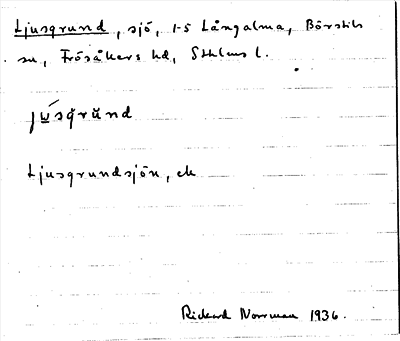 Ljusgrund, sjö, 1-5 Långalma, Börstils
sn, Frösåkers hd, Sthlms l.
jús̀grŭnd
Ljusgrundsjön, ek
Rickard Norrman 1936.